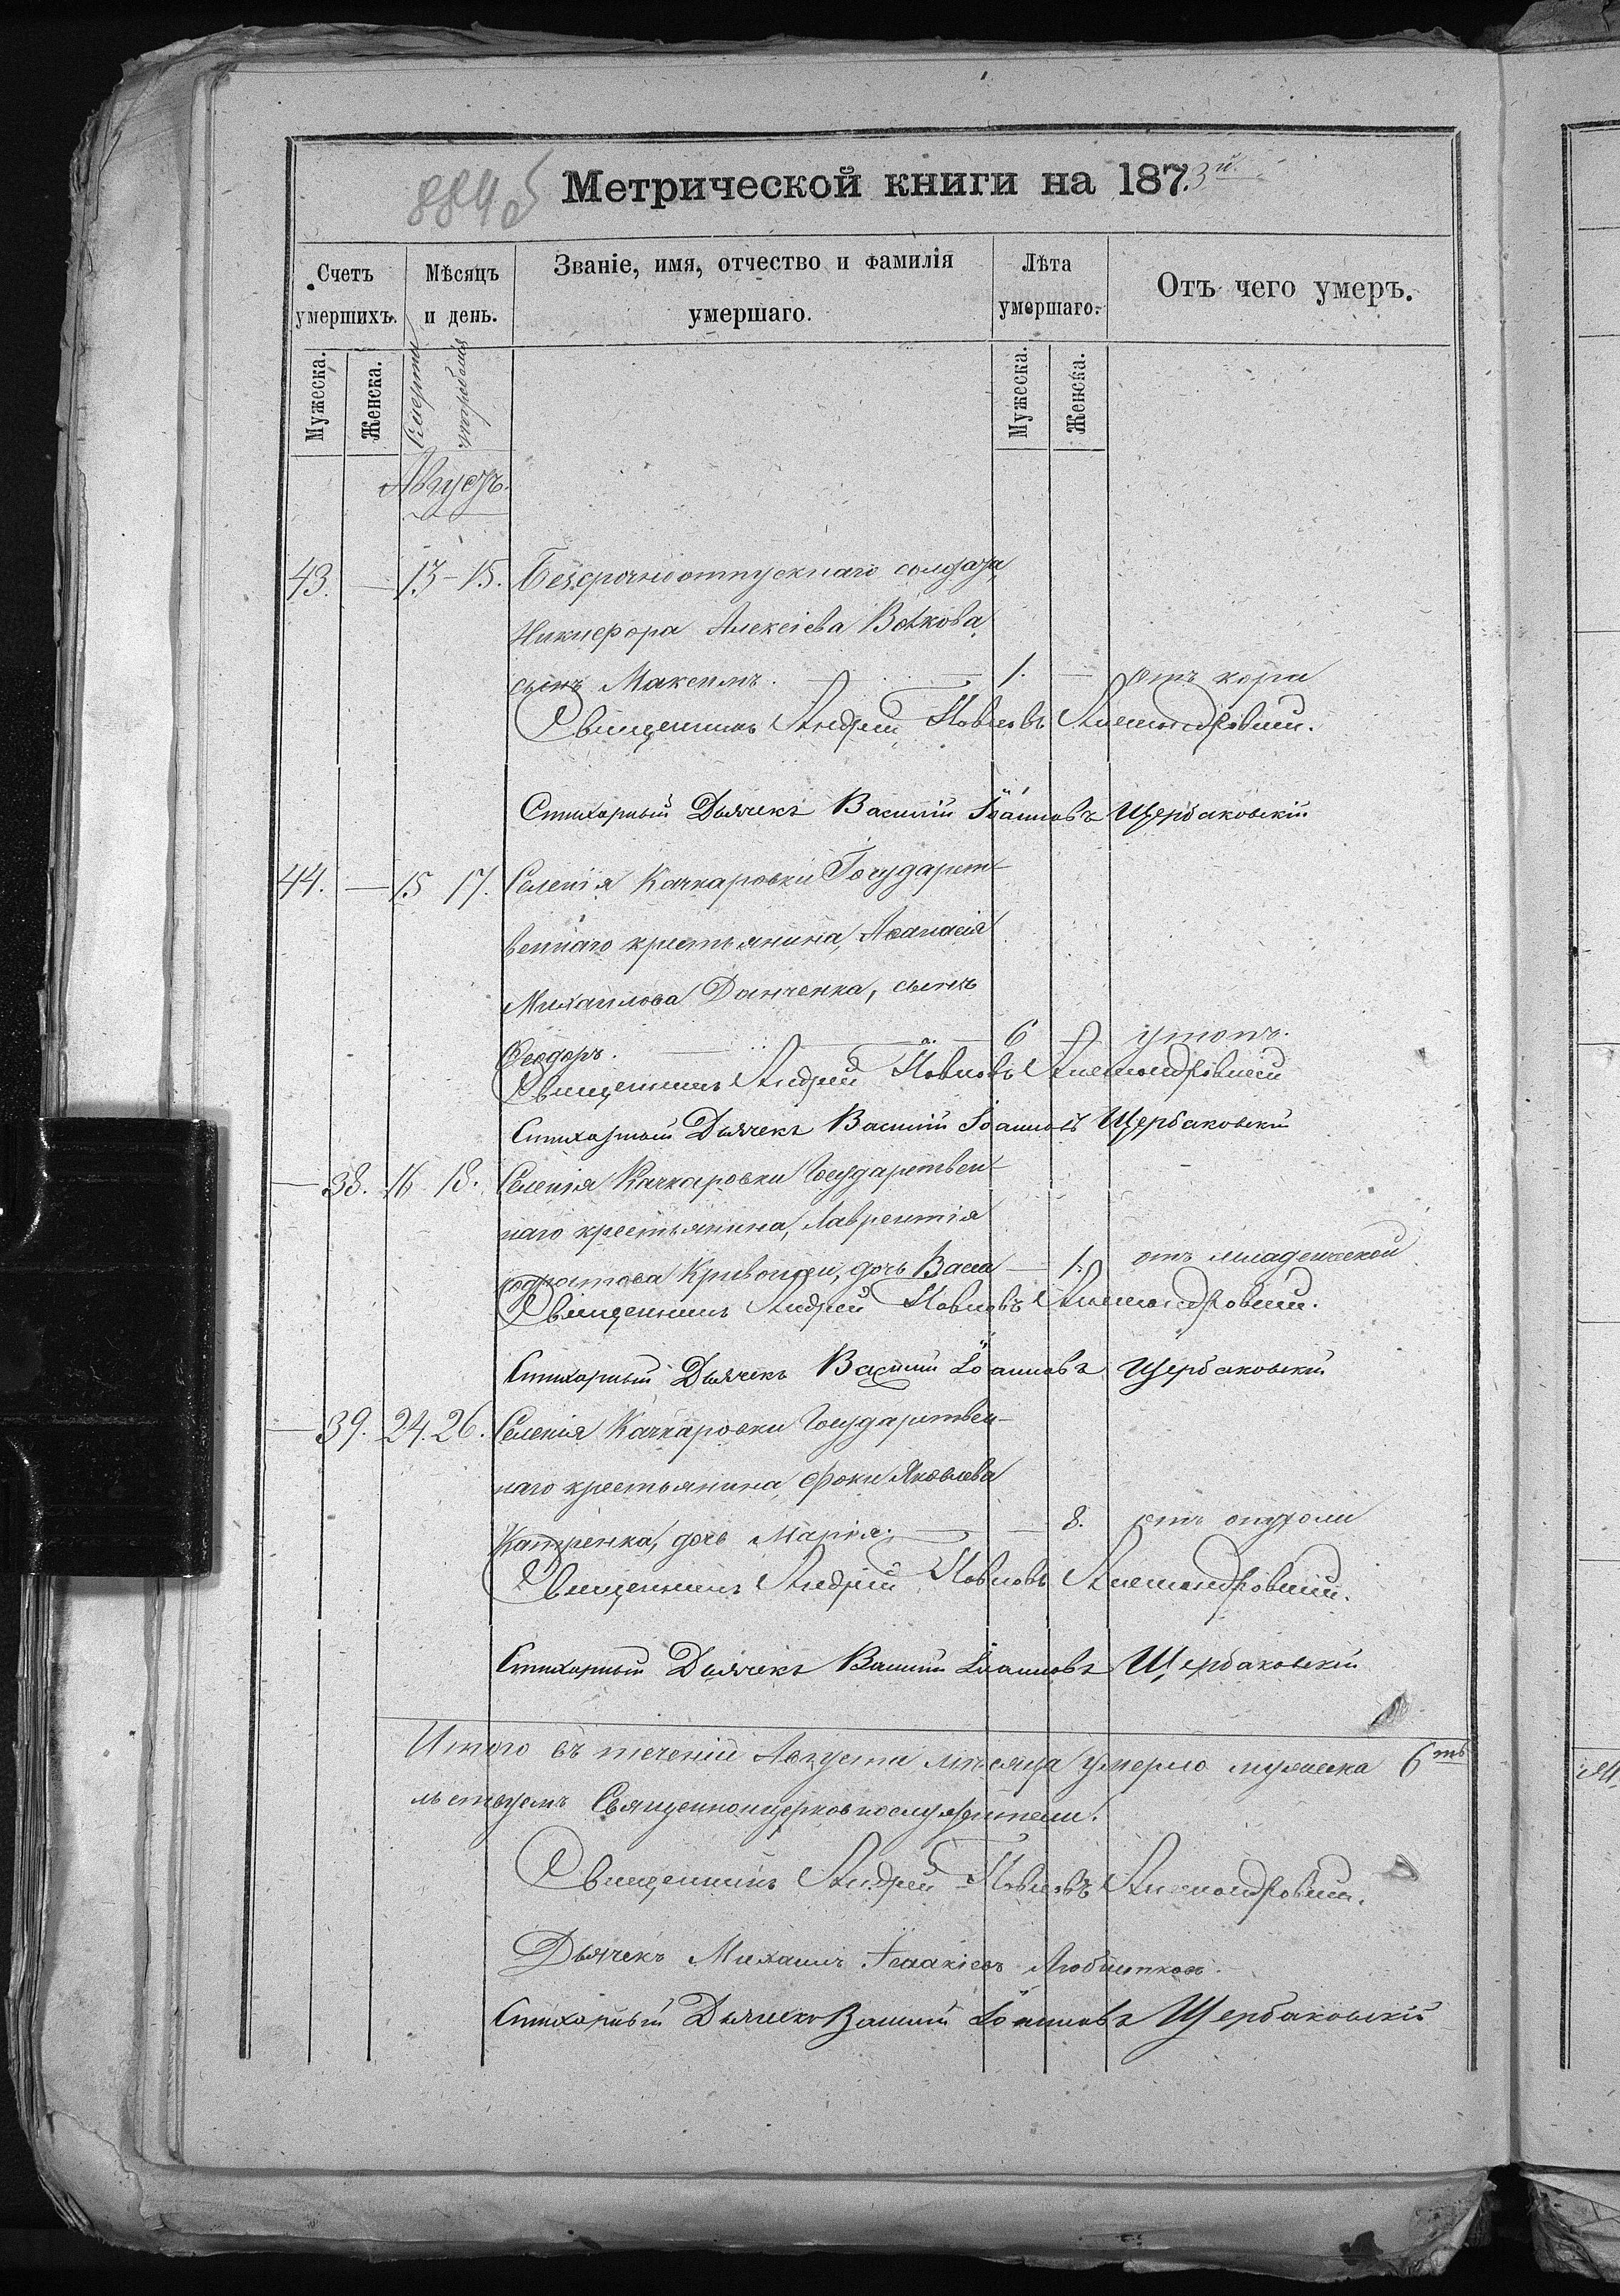 Метрической книги на 187.3й.
Счетъ умершихъ.
Мѣсяцъ и день.
Званіе, имя, отчество и фамилія умершаго.
Лѣта умершаго.
Отъ чего умеръ.
Мужеска.
Женска.
Смерти
погребенія
Мужеска.
Женска.
Августъ.
43. — 13-15. Безсрочноотпускнаго солдата
Никифора Алексіева Волкова
сынъ Максимъ. — 1. — отъ кори
Священникъ Андрей Павловъ Александровскій.
Стихарный Дьячекъ Василій Іоанновъ Щербаковскій
44. — 15 17. Селенія Качкаровки Государст-
веннаго крестьянина, Аѳанасія
Михаилова Данченка, сынъ
Ѳеодоръ. — 6 — утопъ.
Священникъ Андрей Павловъ Александровскій
Стихарный Дьячекъ Василій Іоанновъ Щербаковскій
— 38. 16 18. Селенія Качкаровки Государствен-
наго крестьянина, Лаврентія
Кривошеи, дочь Васса — 1. отъ младенческой
Священникъ Андрей Павловъ Александровскій.
Стихарный Дьячекъ Василій Іоанновъ Щербаковскій
— 39. 24. 26. Селенія Качкаровки Государствен-
наго крестьянина Фоки Яковлева
Катренка, дочь Марія. — — 8. отъ опухоли
Священникъ Андрей Павловъ Александровскій.
Стихарный Дьячекъ Василій Іоанновъ Щербаковскій
Итого въ теченіи Августа мѣсяца умерло мужеска 6ть
льствуемъ Священноцерковнослужители.
Священникъ Андрей Павловъ Александровскій.
Дьячекъ Михаилъ Исаакіевъ
Стихарный Дьячекъ Василій Іоанновъ Щербаковскій